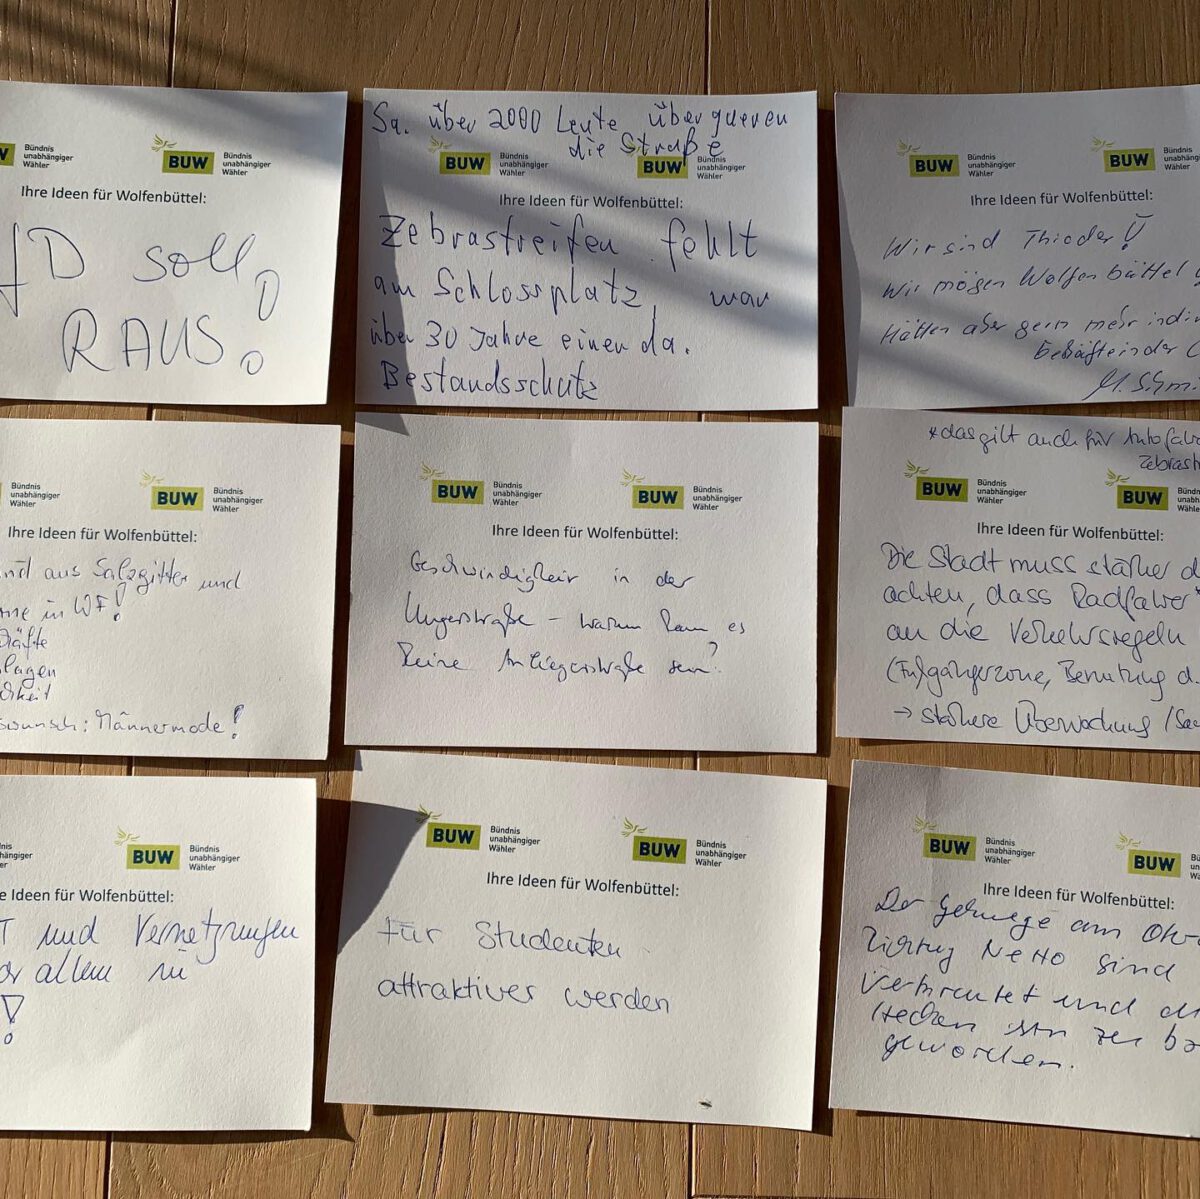 BUW
Bündnis
unabhängiger
Wähler
Ihre Ideen für Wolfenbüttel:
fD soll
RAUS!
Sa. über 2000 Leute überqueren
die Straße
BUW
Bündnis
unabhängiger
Wähler
BUW
Bündnis
unabhängiger
Wähler
Ihre Ideen für Wolfenbüttel:
Zebrastreifen fehlt
am Schlossplatz, war
über 30 Jahre einer da.
Bestandsschutz
BUW
Bündnis
unabhängiger
Wähler
BUW
Ihre Ideen für Wolfenbüttel:
Wir sind Thieder!
Wir mögen Wolfenbüttel
Hätten aber gern mehr indi
in der
Bündnis
unabhängiger
Wähler
BUW
Bündnis
unabhängiger
Wähler
Ihre Ideen für Wolfenbüttel:
sind aus Salzgitter und
in WF!
wunsch: Männermode!
BUW
Bündnis
unabhängiger
Wähler
BUW
Bündnis
unabhängiger
Wähler
Ihre Ideen für Wolfenbüttel:
Geschwindigkeit in der
Ungerstraße - warum kann es
keine Anliegerstraße sein?
*das gilt auch für Autofah
Zebrast
BUW
Bündnis
unabhängiger
Wähler
BUW
Ihre Ideen für Wolfenbüttel:
Die Stadt muss stärker d
achten, dass Radfahrer*
an die Verkehrsregeln
(Fußgängerzone, Benutzung d.
→ stärkere Überwachung
BUW
Bündnis
unabhängiger
Wähler
e Ideen für Wolfenbüttel:
T und Vernetzungen
or allem in
!
BUW
Bündnis
unabhängiger
Wähler
BUW
Bündnis
unabhängiger
Wähler
Ihre Ideen für Wolfenbüttel:
Für Studenten
attraktiver werden
BUW
Bündnis
unabhängiger
Wähler
BUW
Ihre Ideen für Wolfenbüttel:
Der Gehwege am
Richtung Netto sind
Verkrautet und di
Hecken zu
geworden.